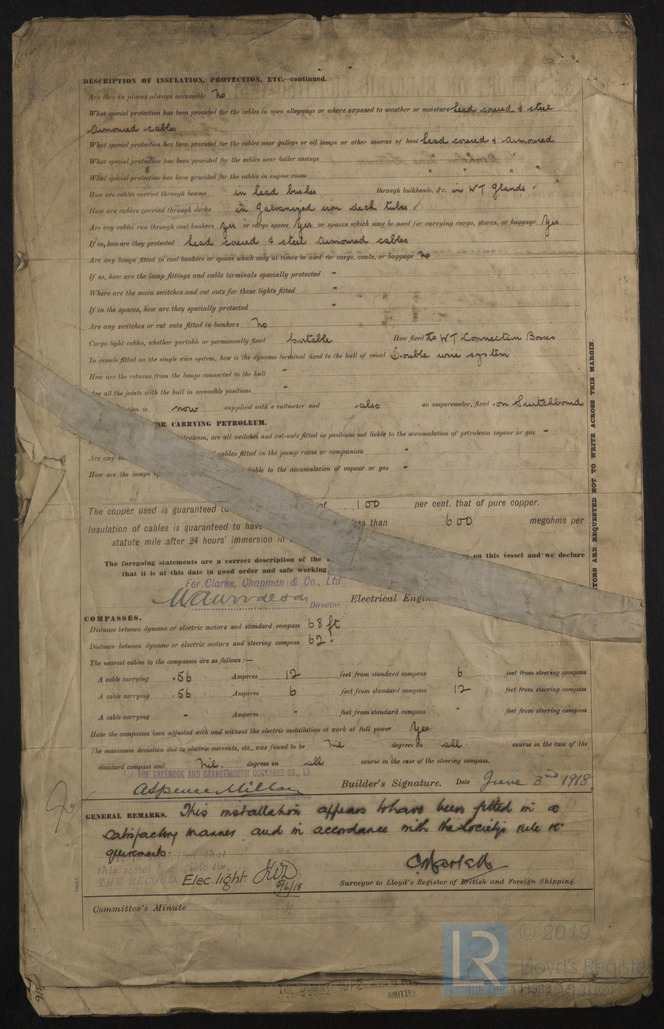 DESCRIPTION OF INSULATION, PROTECTION, ETC.—continued.
Are they in places always accessible No
What special protection has been provided for the cables in open alleyways or where exposed to weather or moisture Lead covered & steel
armoured cables
What special protection has been provided for the cables near galleys or oil lamps or other sources of heat Lead covered & armoured
What special protection has been provided for the cables near boiler casings " " "
What special protection has been provided for the cables in engine room " " "
How are cables carried through beams in lead bushes through bulkheads, &c. in W T glands ✓
How are cables carried through decks in Galvanized iron deck tubes ✓
Are any cables run through coal bunkers Yes or cargo spaces Yes or spaces which may be used for carrying cargo, stores, or baggage Yes
If so, how are they protected lead covered & steel armoured cables
Are any lamps fitted in coal bunkers or spaces which may at times be used for cargo, coals, or baggage No
If so, how are the lamp fittings and cable terminals specially protected -
Where are the main switches and cut outs for these lights fitted -
If in the spaces, how are they specially protected -
Are any switches or cut outs fitted in bunkers No
Cargo light cables, whether portable or permanently fixed Portable How fixed to W T Connection Boxes
In vessels fitted on the single wire system, how is the dynamo terminal fixed to the hull of vessel Double wire system
How are the returns from the lamps connected to the hull -
Are all the joints with the hull in accessible positions -
is now supplied with a voltmeter and also an amperemeter, fixed on Switchboard
FOR CARRYING PETROLEUM.
petroleum, are all switches and cut-outs fitted in positions not liable to the accumulation of petroleum vapour or gas -
Are any cables fitted in the pump room or companion -
How are the lamps liable to the accumulation of vapour or gas -
The copper used is guaranteed to 100 per cent. that of pure copper.
Insulation of cables is guaranteed to have less than 600 megohms per
statute mile after 24 hours' immersion in
The foregoing statements are a correct description of the on this vessel and we declare
that it is at this date in good order and safe working
For Clarke, Chapman & Co., Ltd
Director Electrical Engin
COMPASSES.
Distance between dynamo or electric motors and standard compass 68 ft
Distance between dynamo or electric motors and steering compass 62 "
The nearest cables to the compasses are as follows:—
A cable carrying .56 Amperes 12 feet from standard compass 6 feet from steering compass
A cable carrying .56 Amperes 6 feet from standard compass 12 feet from steering compass
A cable carrying - Amperes - feet from standard compass - feet from steering compass
Have the compasses been adjusted with and without the electric installation at work at full power Yes
The maximum deviation due to electric currents, etc., was found to be Nil degrees on all course in the case of the
standard compass and Nil. degrees on all course in the case of the steering compass.
THE GREENOCK AND GRANGEMOUTH DOCKYARD CO., LD.
Builder's Signature. Date June 3rd 1918
GENERAL REMARKS. This installation appears to have been fitted in a
satisfactory manner and in accordance with the Society's rule re
quirements.
THE RECORD. Elec. light.
9/6/18
Surveyor to Lloyd's Register of British and Foreign Shipping.
Committee's Minute
ARE REQUESTED NOT TO WRITE ACROSS THIS MARGIN.
WRITTEN
LR
© 2019
Lloyd's Register